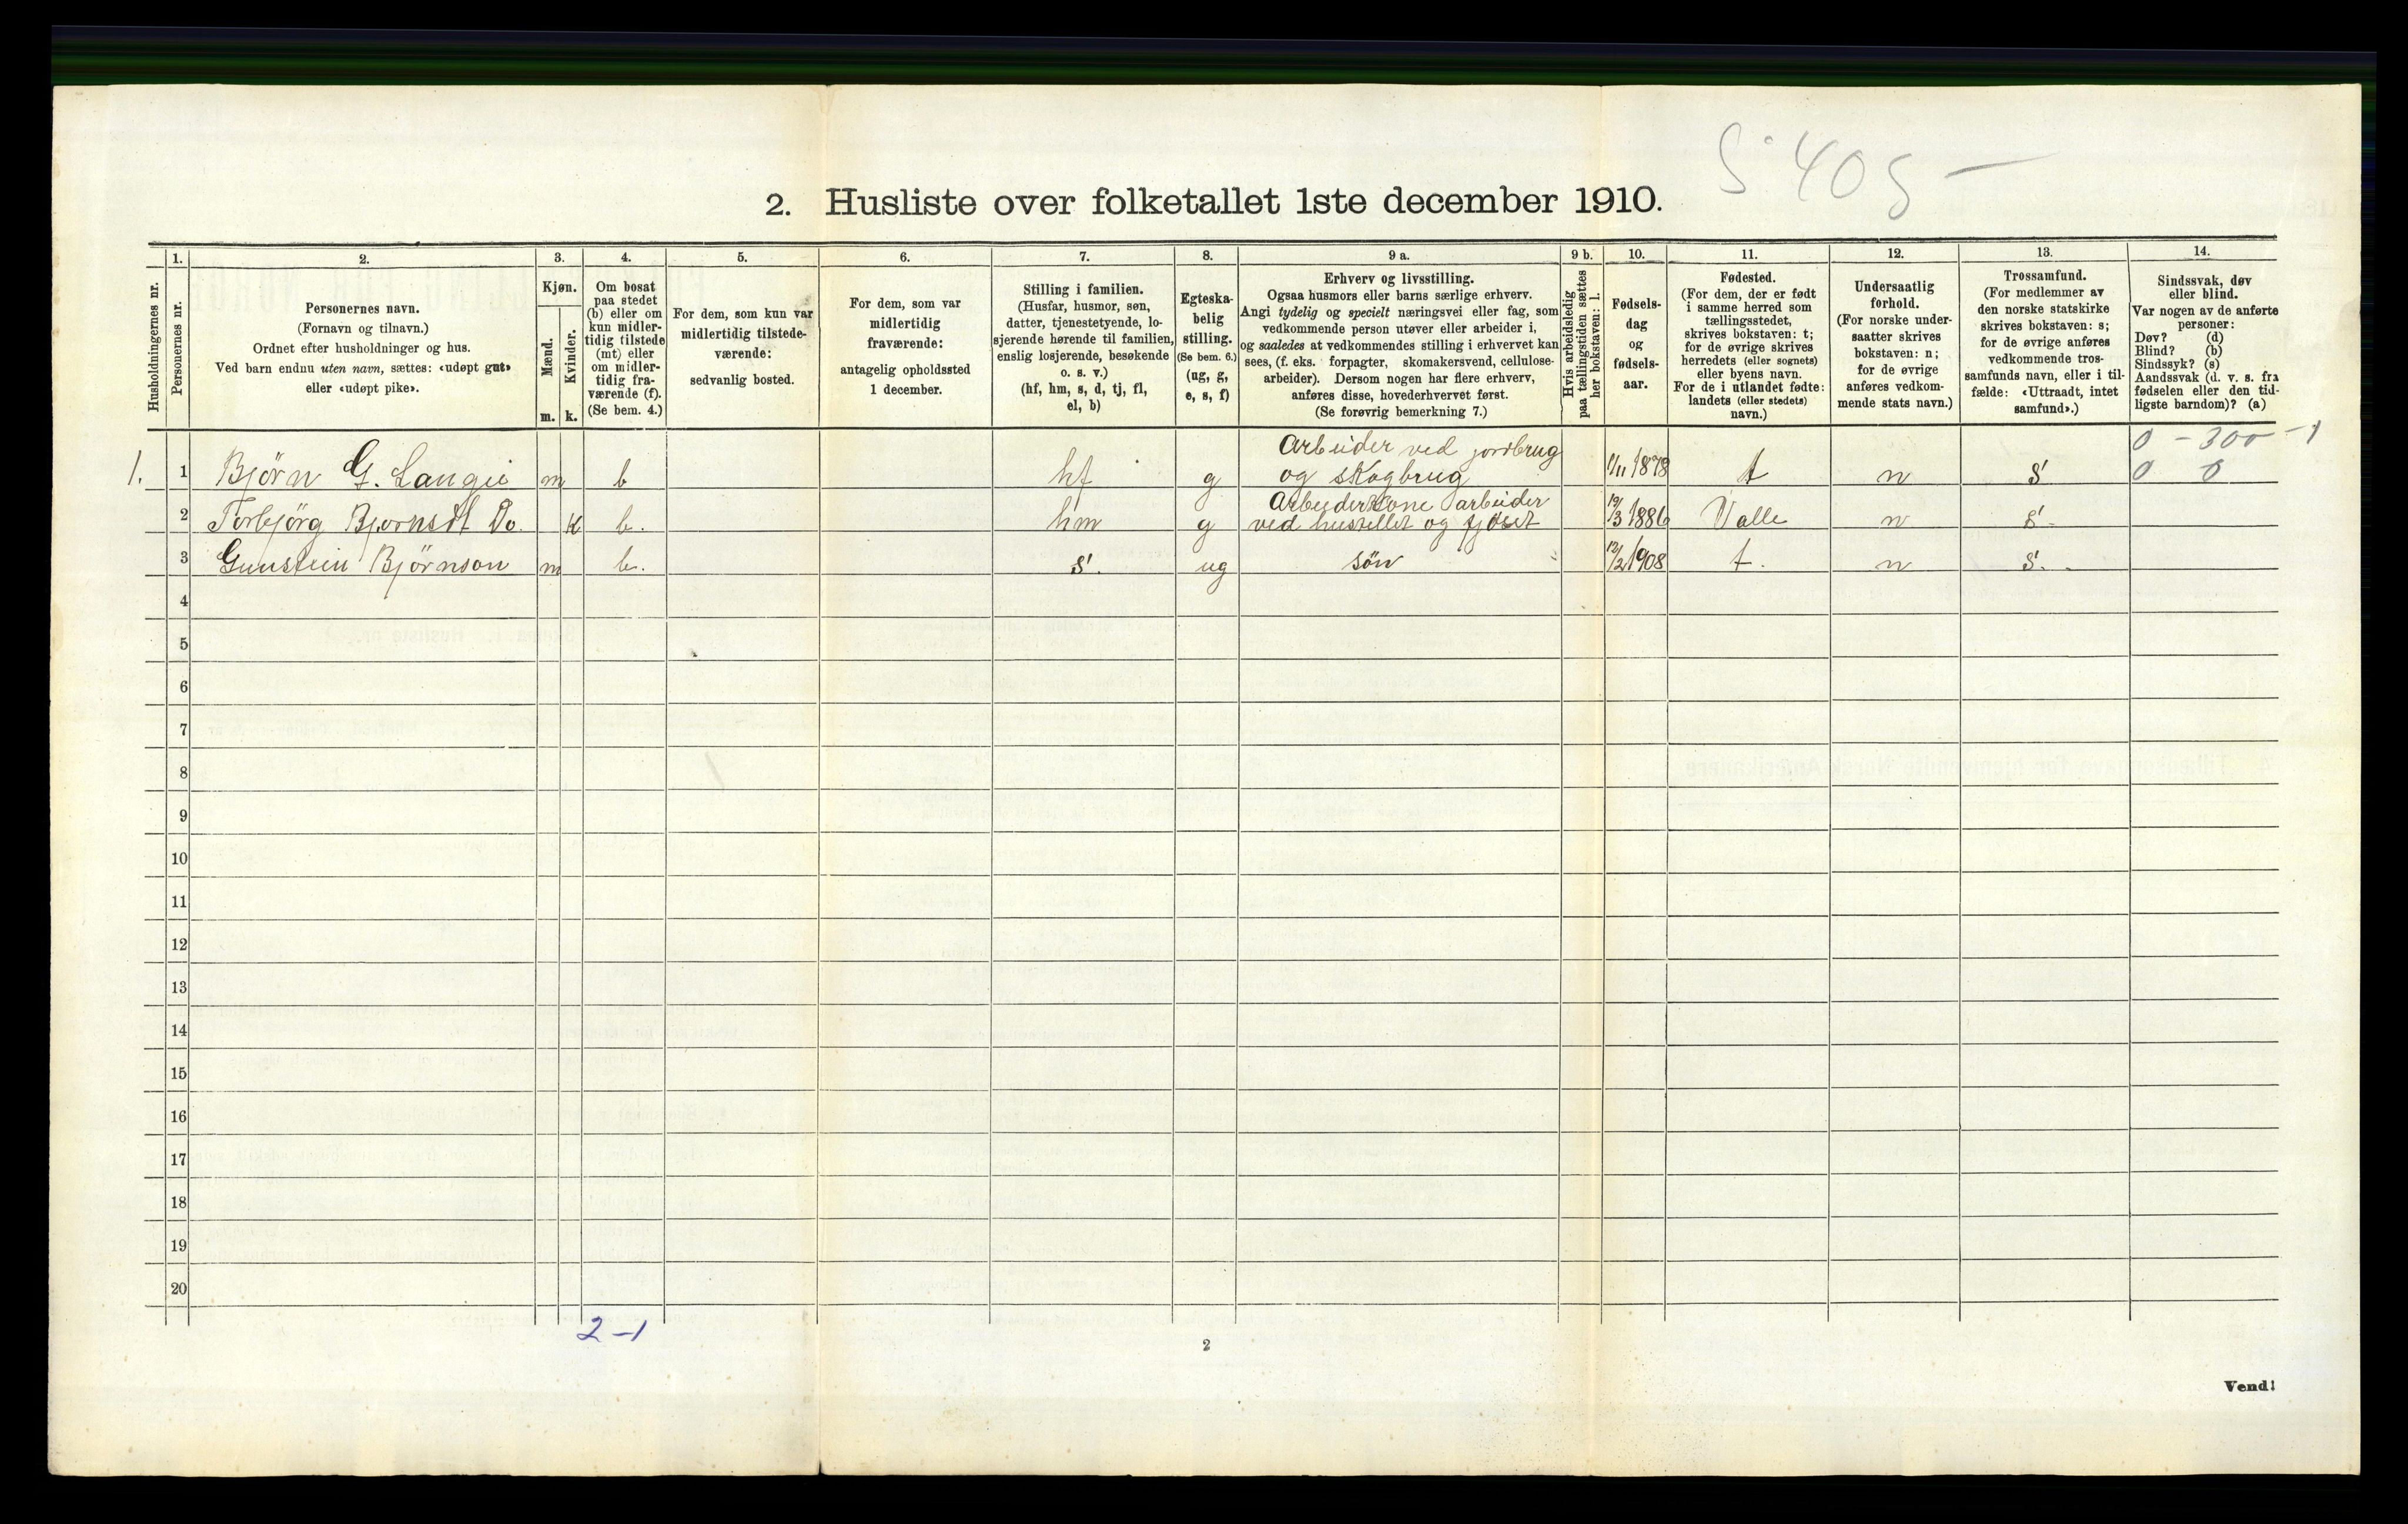 2. Husliste over folketallet 1ste december 1910.
Husholdningernes nr.
1.
Personernes nr.
2.
Personernes navn.
(Fornavn og tilnavn.)
Ordnet efter husholdninger og hus.
Ved barn endnu uten navn, sættes: «udøpt gut»
eller «udøpt pike».
3.
Kjøn.
Mænd.
m.
Kvinder.
k.
4.
Om bosat
paa stedet
(b) eller om
kun midler-
tidig tilstede
(mt) eller
om midler-
tidig fra-
værende (f).
(Se bem. 4.)
5.
For dem, som kun var
midlertidig tilstede-
værende:
sedvanlig bosted.
6.
For dem, som var
midlertidig
fraværende:
antagelig opholdssted
1 december.
7.
Stilling i familien.
(Husfar, husmor, søn,
datter, tjenestetyende, lo-
sjerende hørende til familien,
enslig losjerende, besøkende
o. s. v.)
(hf, hm, s, d, tj, fl,
el, b)
8.
Egteska-
belig
stilling.
(Se bem. 6.)
(ug, g,
e, s, f)
9 a.
Erhverv og livsstilling.
Ogsaa husmors eller barns særlige erhverv.
Angi tydelig og specielt næringsvei eller fag, som
vedkommende person utøver eller arbeider i,
og saaledes at vedkommendes stilling i erhvervet kan
sees, (f. eks. forpagter, skomakersvend, cellulose-
arbeider). Dersom nogen har flere erhverv,
anføres disse, hovederhvervet først.
(Se forøvrig bemerkning 7.)
9 b.
Hvis arbeidsledig
paa tællingstiden sættes
her bokstaven: l.
10.
Fødsels-
dag
og
fødsels-
aar.
11.
Fødested.
(For dem, der er født
i samme herred som
tællingsstedet,
skrives bokstaven: t;
for de øvrige skrives
herredets (eller sognets)
eller byens navn.
For de i utlandet fødte:
landets (eller stedets)
navn.)
12.
Undersaatlig
forhold.
(For norske under-
saatter skrives
bokstaven: n;
for de øvrige
anføres vedkom-
mende stats navn.)
13.
Trossamfund.
(For medlemmer av
den norske statskirke
skrives bokstaven: s;
for de øvrige anføres
vedkommende tros-
samfunds navn, eller i til-
fælde: «Uttraadt, intet
samfund».)
14.
Sindssvak, døv
eller blind.
Var nogen av de anførte
personer:
Døv? (d)
Blind? (b)
Sindssyk? (s)
Aandssvak (d. v. s. fra
fødselen eller den tid-
ligste barndom)? (a)
0 - 300 - 1
Arbeider ved jordbrug
1. 1 Bjørn G. Langei m b hf g og skogbrug 1/11 1878 t n s 0 0
Arbeiderkone arbeider
2 Torbjörg Bjornsdt Do. k b. hm g ved hustellet og fjöset 19/3 1886 Valle n s.
3 Gunstein Björnson m b. s. ug søn 12/2 1908 t. n s.
4
5
6
7
8
9
10
11
12
13
14
15
16
17
18
19
20
2-1
2
Vend!